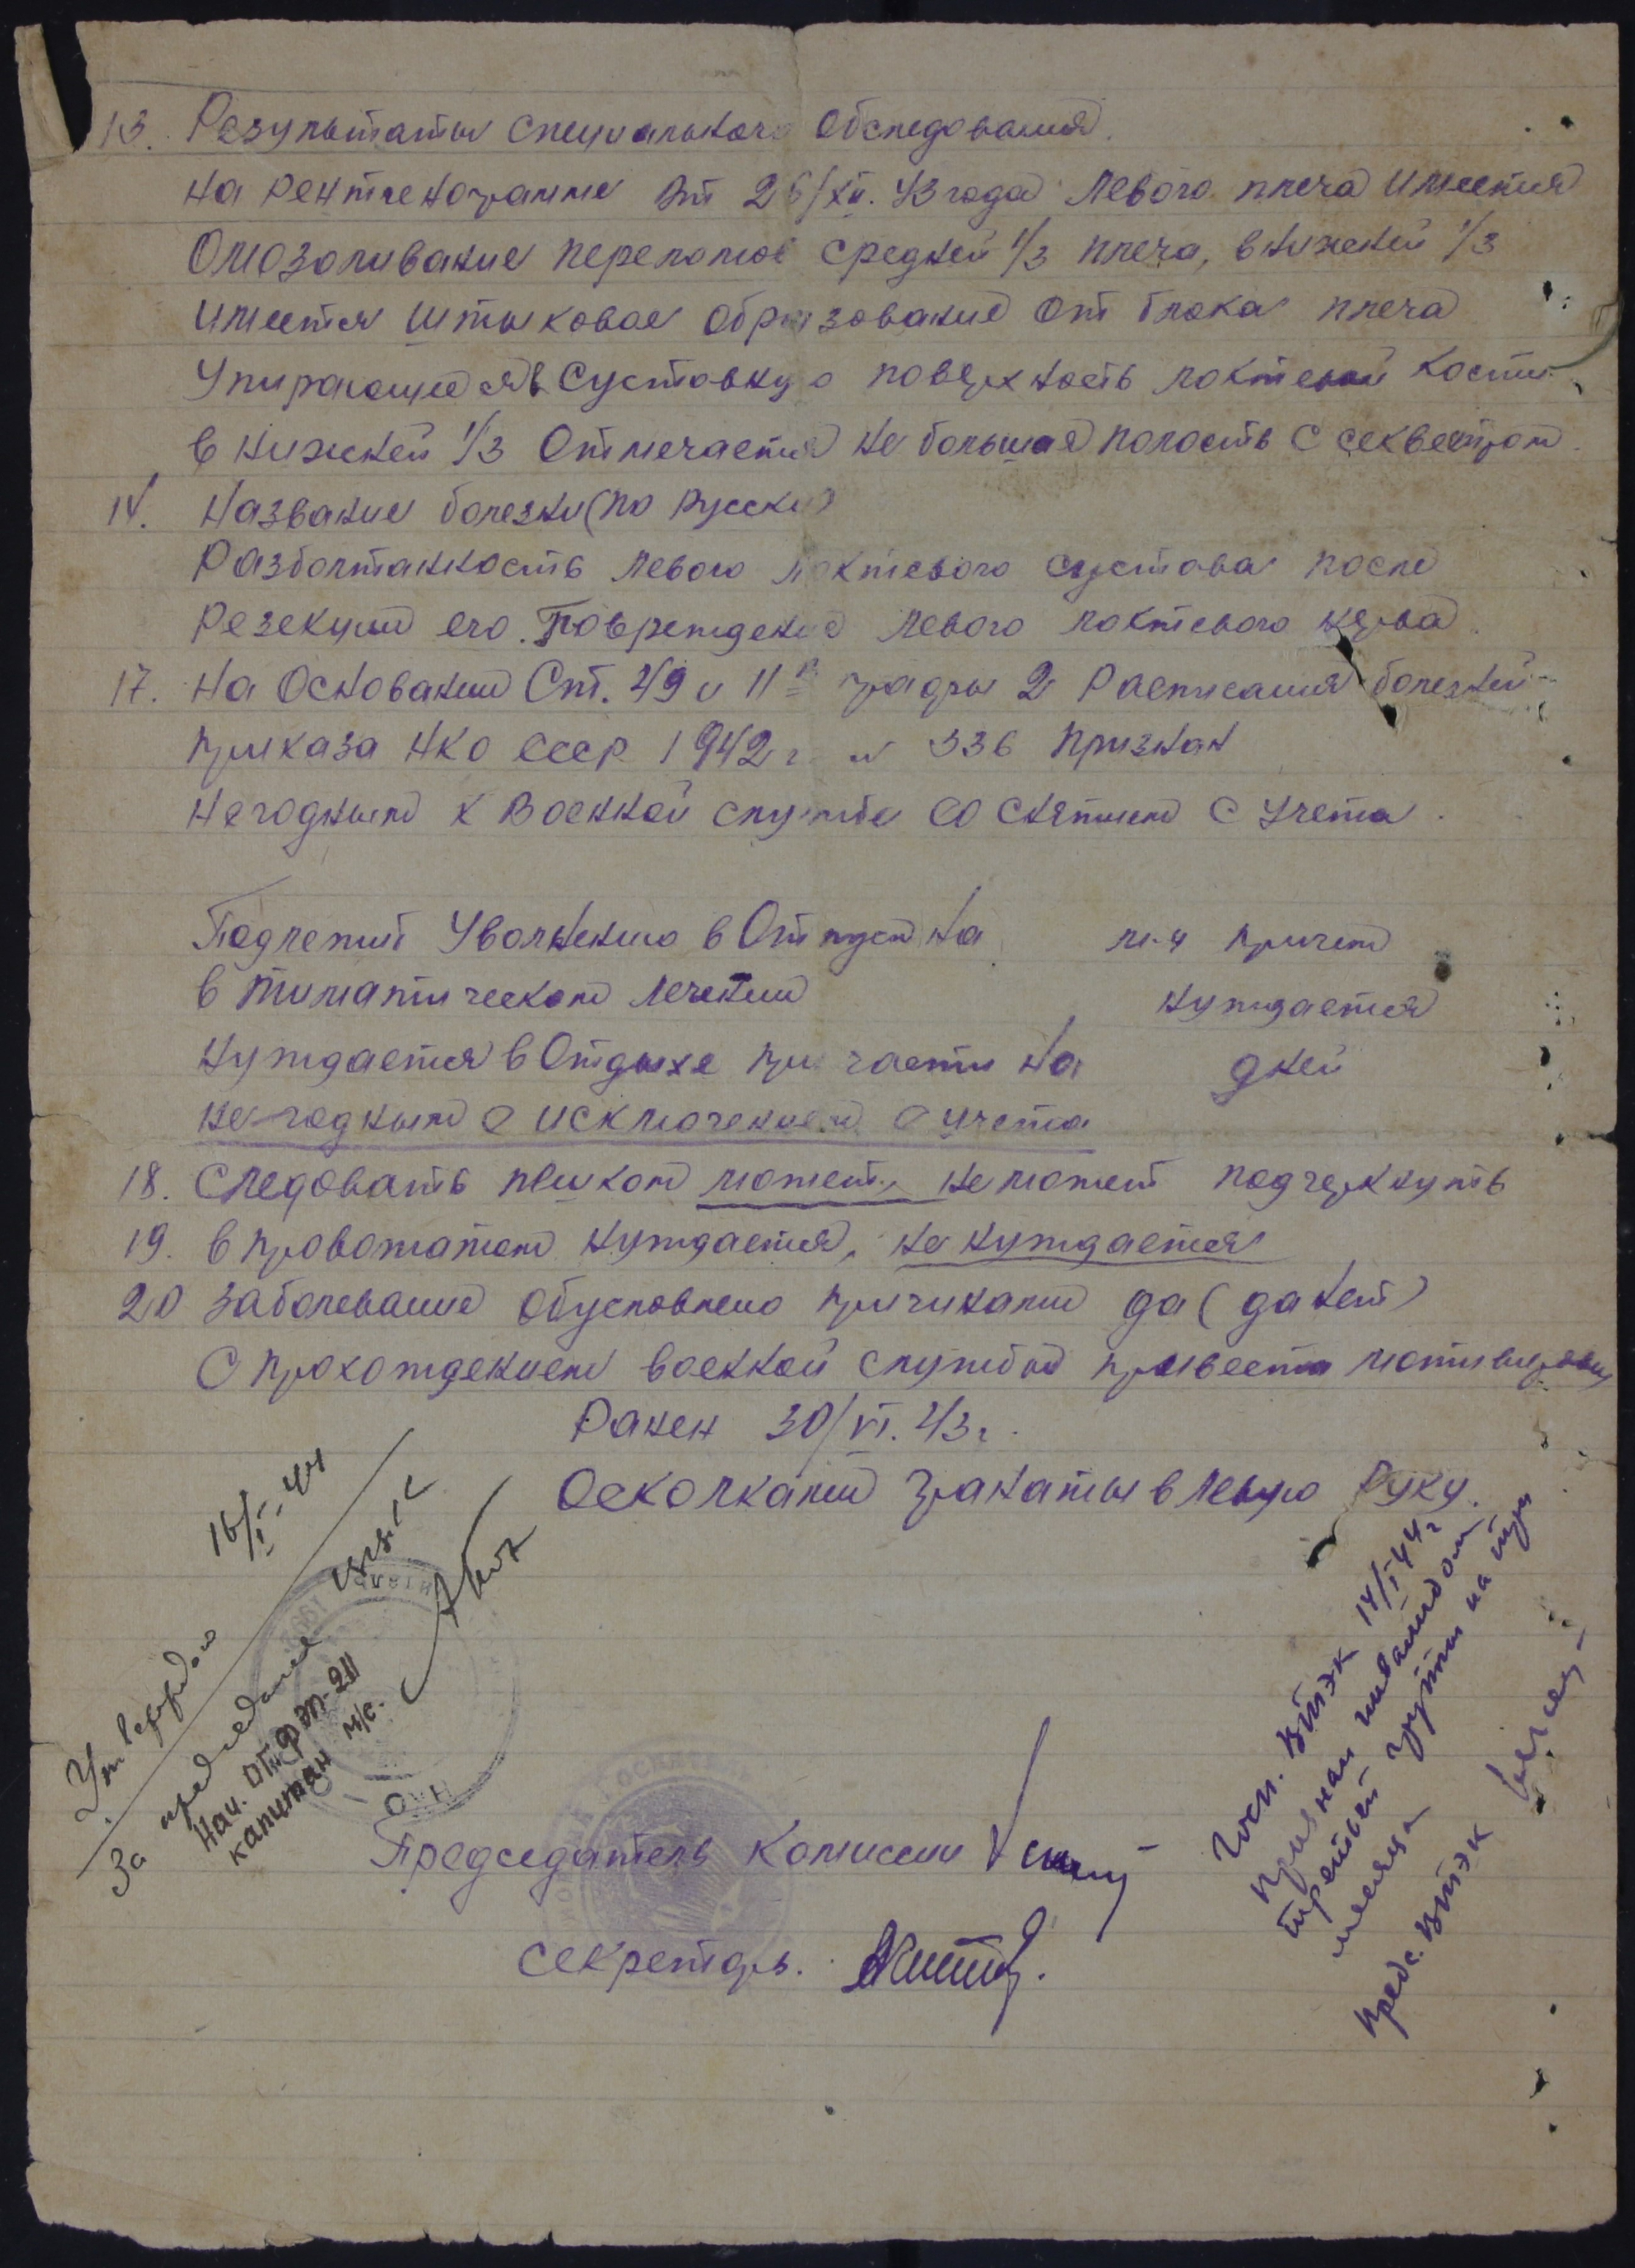 13. Результаты специального обследования.
на рентгенограмме от 26/XII. 43 года левого плеча имеется
Омозоливание перелома средней 1/3 плеча, в нижней 1/3
имеется штыковое образование от блока плеча
Упирающееся в суставную поверхность локтевой кости
в нижней 1/3 Отмечается не большая полость с секвестром.
14. Название болезни (по русски)
Разболтанность левого локтевого сустава после
Резекции его. Повреждение левого локтевого нерва.
17. На Основании Ст. 49 и 11 графы 2 Расписания болезней
приказа НКО СССР 1942 г № 336 признан
Негодным к Военной службе со снятием с учета.
Подлежит Увольнению в Отпуск на м-ц причем
в климатическом лечении нуждается
Нуждается в Отдыхе при части на дней
не-годным с исключением с учета
18. Следовать пешком может, не может подчеркнуть
19. в провожатом нуждается, не нуждается
20 Заболевание обусловлено причинами да (да нет)
С прохождением военной службой привести мотивировку
Ранен 30/VI. 43 г.
Осколками гранаты в левую Руку.
16/I-44
Утверждаю
За председателя
Нач. отд. ФЭП-211
капитан м/с.
Госп. ВТЭК 14/I 44 г
признал инвалидом
третьей группы на три
месяца
Пред. ВТЭК
Председатель Комиссии
Секретарь.